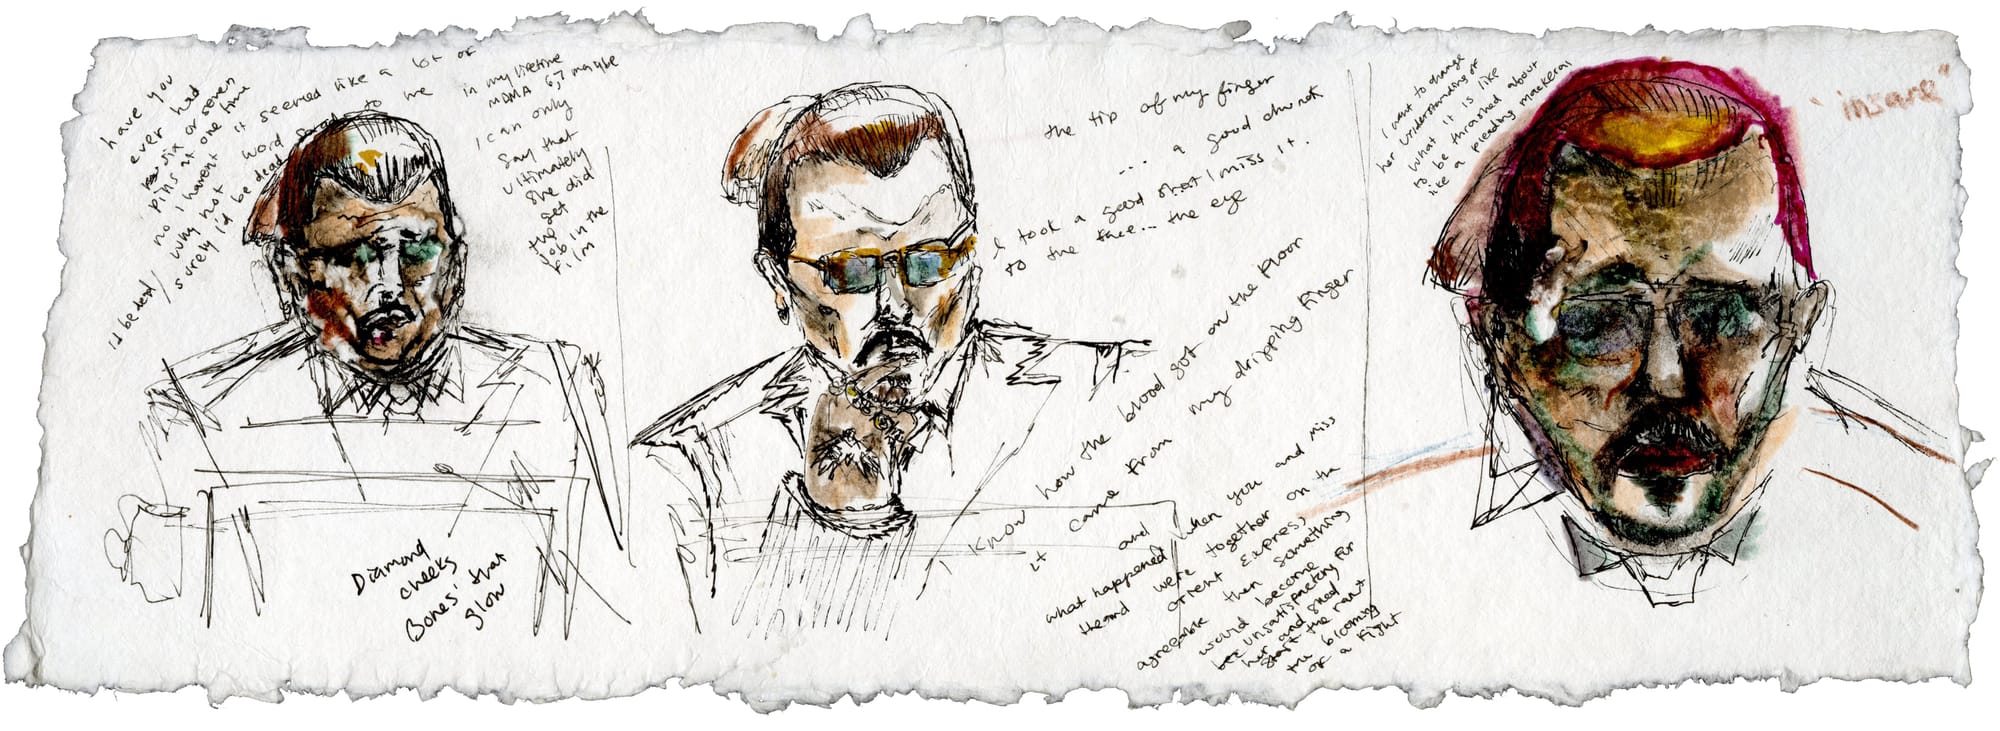 have you
ever had
six or seven
pills at one time
no I havent
why not
surely i'd be dead
i'd be dead /
it seemed like a lot of
word salad to me
in my lifetime
MDMA 6,7 maybe
I can only
say that
ultimately
she did
get
the
job in the
film
Diamond
cheeks
Bones' that
glow
the tip of my finger
.... a good chunk
I took a good shot / miss it.
to the face... the eye
know how the blood got on the floor
and it came from my dripping finger
what happened / when you and miss
heard were together on the
orient express
agreeable then something
would become
unsatisfactory for
her and she'd
start the rant
the blooming
of a fight
I want to change
her understanding of
what it is like
to be thrashed about
like a pleading mackeral
"insane"